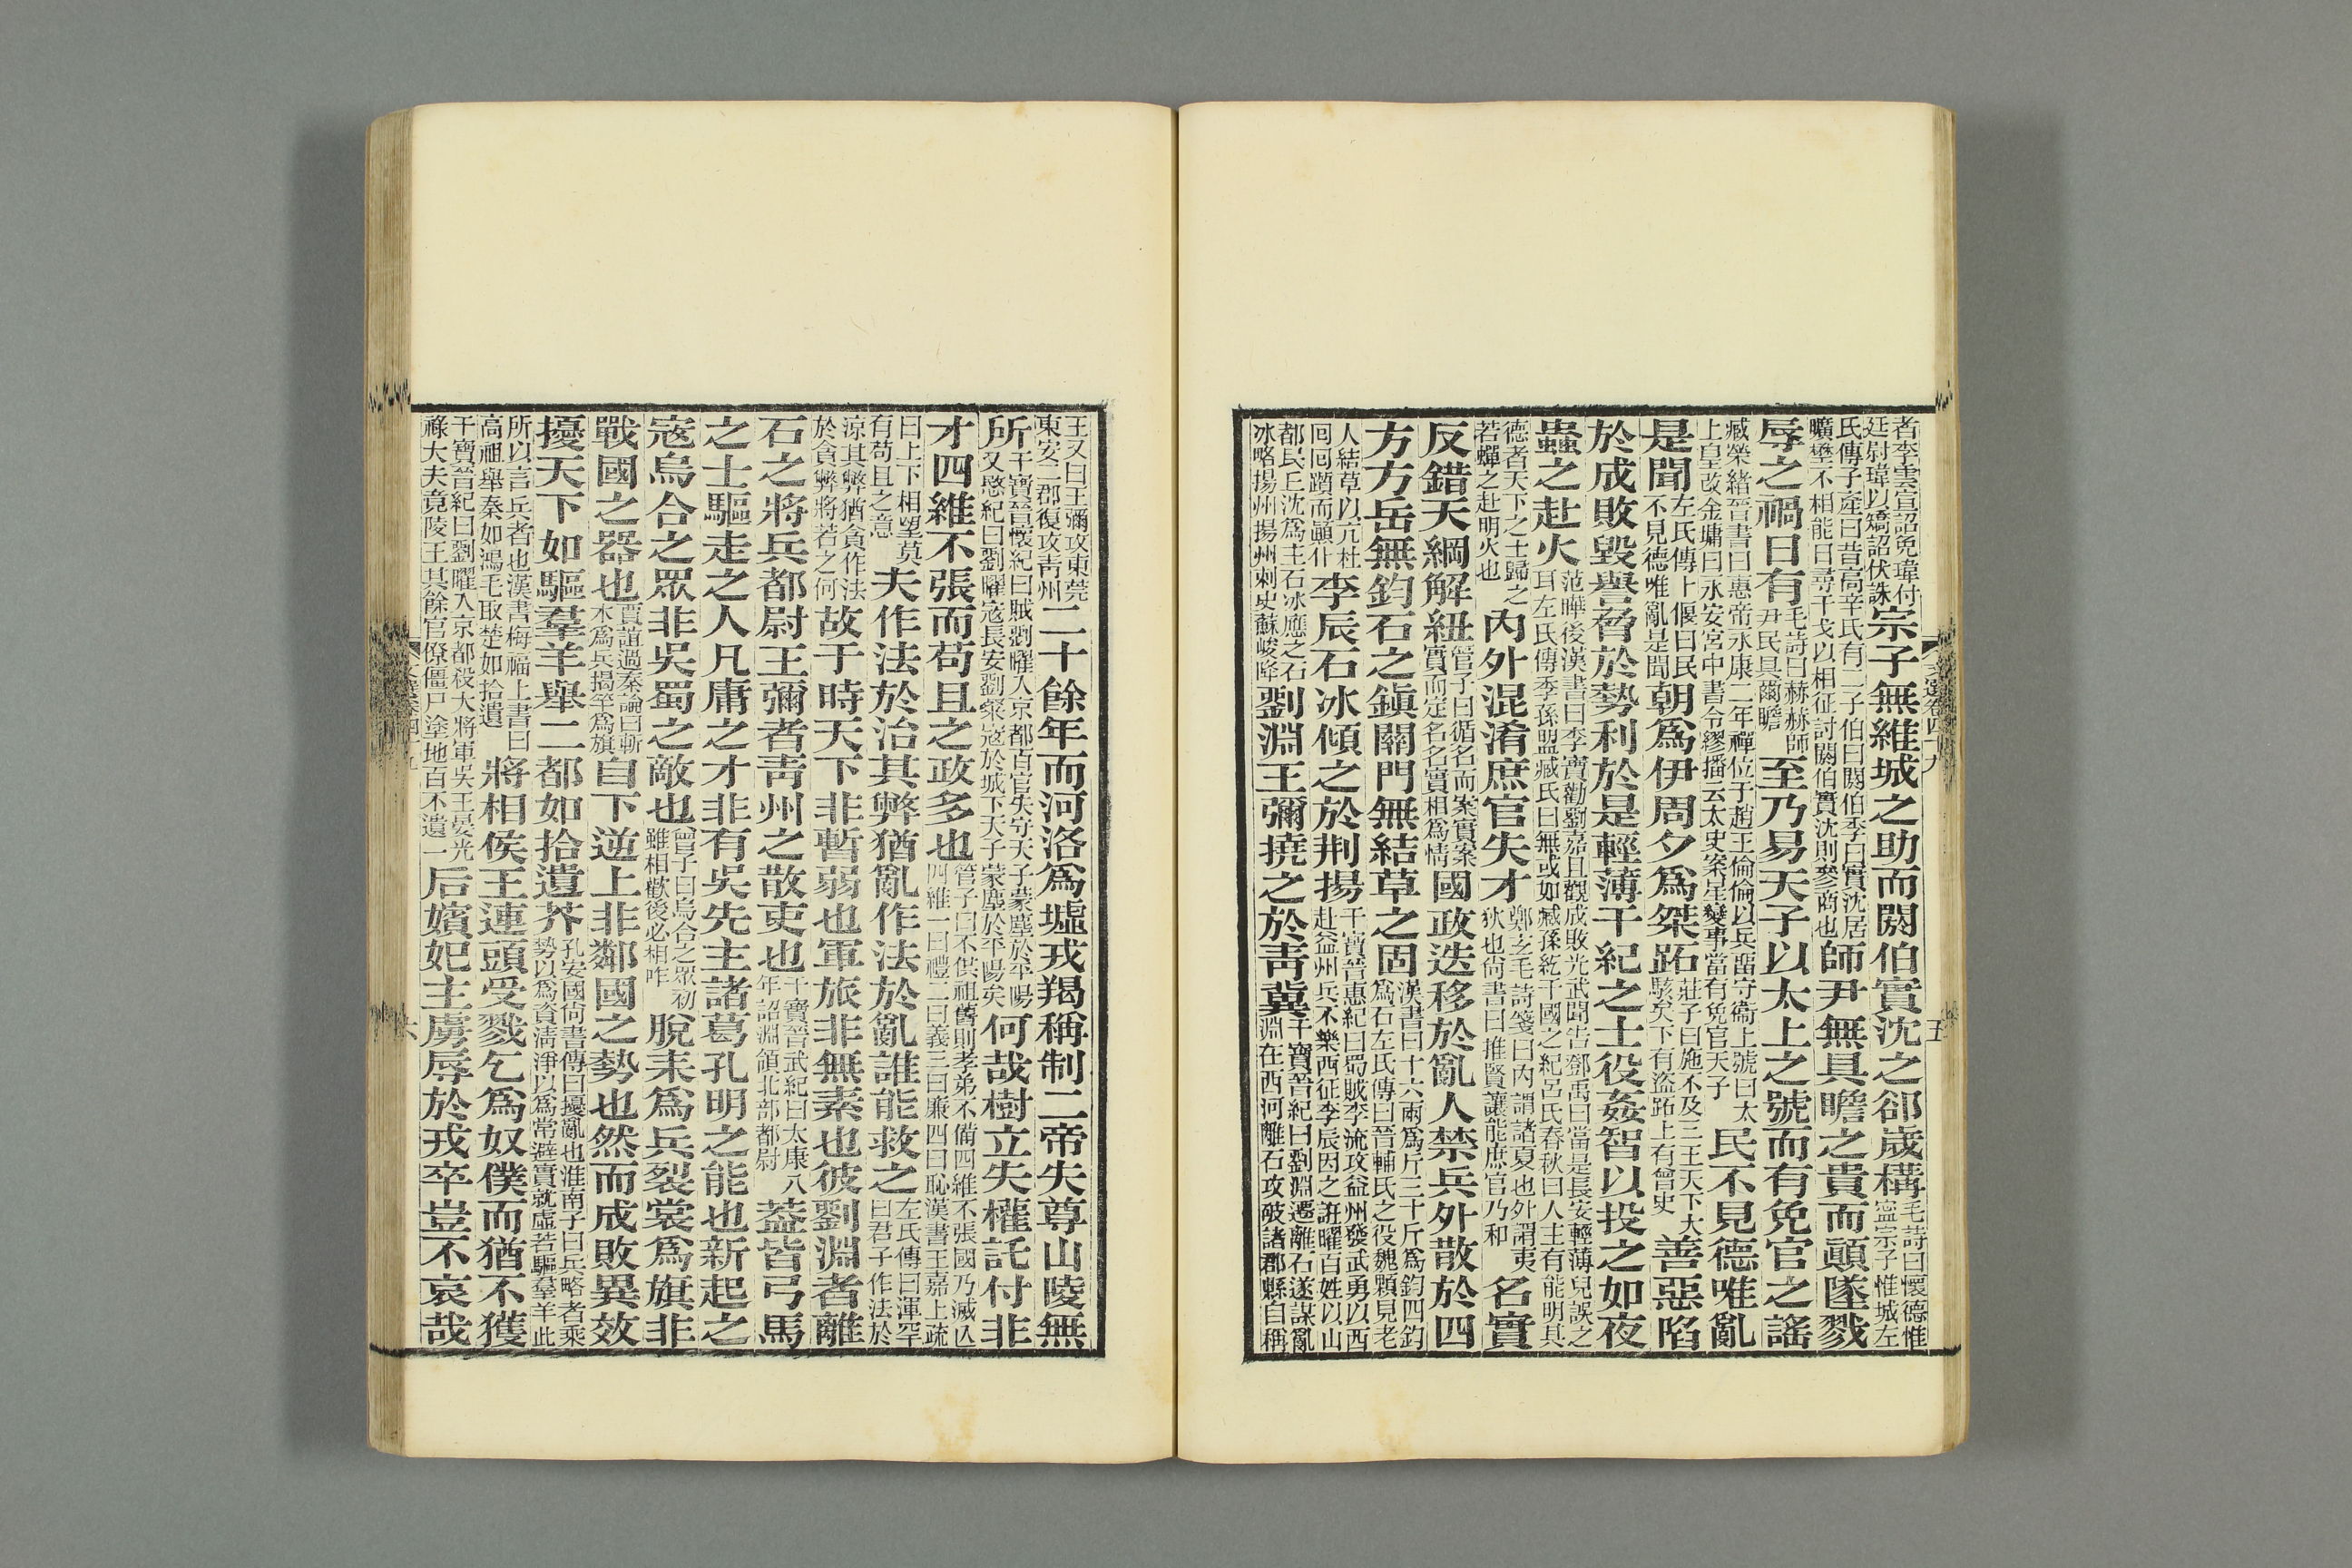 者李雲宣詔免瑋付廷尉瑋以矯詔伏誅宗子無維城之助而閼伯實沈之郤歲構毛詩曰懷德惟寍宗子惟城左
氏傳子產曰昔高辛氏有二子伯曰閼伯季曰實沈居曠壄不相能日尋干戈以相征討閼伯實沈則參商也師尹無具瞻之貴而顚墜戮
辱之禍日有毛詩曰赫赫師尹民具爾瞻至乃易天子以太上之號而有免官之謠
臧榮緒晉書曰惠帝永康二年禪位于趙王倫倫以兵留守衞上號曰太上皇改金墉曰永安宮中書令繆播云太史案星變事當有免官天子民不見德唯亂
是聞左氏傳卜偃曰民不見德唯亂是聞朝爲伊周夕爲桀跖莊子曰施不及三王天下大駭矣下有盜跖上有曾史善惡陷
於成敗毀譽脅於勢利於是輕薄干紀之士役姦智以投之如夜
蟲之赴火范曄後漢書曰李寶勸劉嘉且觀成敗光武聞告鄧禹曰當是長安輕薄兒誤之耳左氏傳季孫盟臧氏曰無或如臧孫紇干國之紀呂氏春秋曰人主有能明其
德者天下之士歸之若蟬之赴明火也內外混淆庶官失才鄭玄毛詩箋曰內謂諸夏也外謂夷狄也尙書曰推賢讓能庶官乃和名實
反錯天綱解紐管子曰循名而案實案實而定名名實相爲情國政迭移於亂人禁兵外散於四
方方岳無鈞石之鎭關門無結草之固漢書曰十六兩爲斤三十斤爲鈞四鈞爲石左氏傳曰晉輔氏之役魏顆見老
人結草以亢杜回回躓而顚仆李辰石冰傾之於荆揚干寶晉惠紀曰蜀賊李流攻益州發武勇以西赴益州兵不樂西征李辰因之誑曜百姓以山
都民丘沈爲主石冰應之石冰略揚州揚州刺史蘇峻降劉淵王彌撓之於靑冀干寶晉紀曰劉淵遷離石遂謀亂淵在西河離石攻破諸郡縣自稱
文選卷四十九
五
王又曰王彌攻東莞東安二郡復攻靑州二十餘年而河洛爲墟戎羯稱制二帝失尊山陵無
所干寶晉懷紀曰賊劉曜入京都百官失守天子蒙塵於平陽又愍紀曰劉曜寇長安劉粲寇於城下天子蒙塵於平陽矣何哉樹立失權託付非
才四維不張而苟且之政多也管子曰不供祖舊則孝弟不備四維不張國乃滅亾四維一曰禮二曰義三曰廉四曰恥漢書王嘉上疏
曰上下相望莫有苟且之意夫作法於治其弊猶亂作法於亂誰能救之左氏傳曰渾罕曰君子作法於
涼其弊猶貪作法於貪弊將若之何故于時天下非暫弱也軍旅非無素也彼劉淵者離
石之將兵都尉王彌者靑州之散吏也干寶晉武紀曰太康八年詔淵領北部都尉葢皆弓馬
之士驅走之人凡庸之才非有吳先主諸葛孔明之能也新起之
寇烏合之眾非吳蜀之敵也曾子曰烏合之眾初雖相歡後必相咋脫耒爲兵裂裳爲旗非
戰國之器也賈誼過秦論曰斬木爲兵揭竿爲旗自下逆上非鄰國之勢也然而成敗異效
擾天下如驅羣羊舉二都如拾遺芥孔安國尙書傳曰擾亂也淮南子曰兵略者乘勢以爲資淸淨以爲常避實就虛若驅羣羊此
所以言兵者也漢書梅福上書曰高祖舉秦如鴻毛取楚如拾遺將相侯王連頭受戮乞爲奴僕而猶不獲
干寶晉紀曰劉曜入京都殺大將軍吳王晏光祿大夫竟陵王其餘官僚僵尸塗地百不遺一后嬪妃主虜辱於戎卒豈不哀哉
六